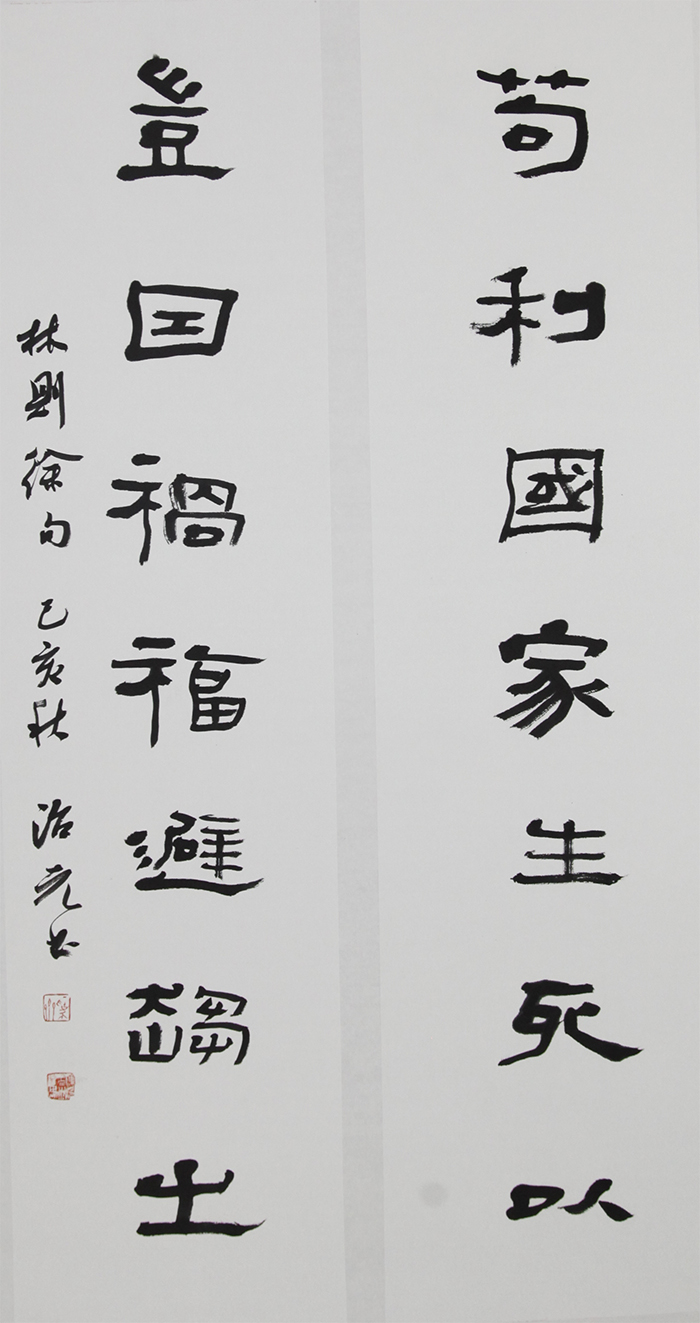 苟利國家生死以
豈因禍福避趨之
林則徐句 己亥秋 治元书